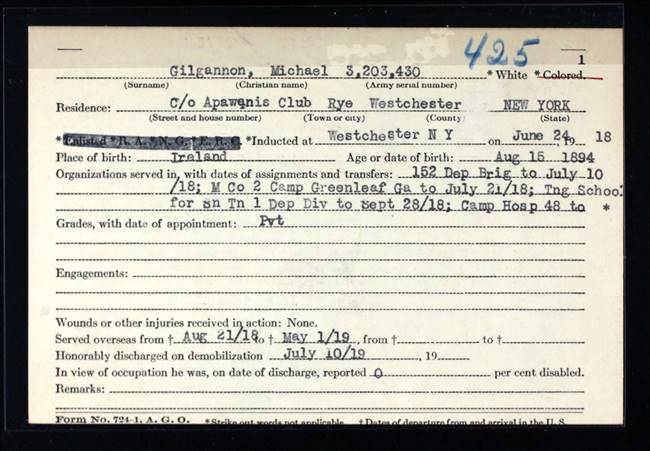 425
1
Gilgannon, Michael 3,203,430 * White * Colored.
(Surname) (Christian name) (Army serial number)
Residence: C/o Apawanis Club Rye Westchester NEW YORK
(Street and house number) (Town or city) (County) (State)
* Enlisted * R. A. * N. G. * E. R. C. * Inducted at Westchester N Y on June 24, 19 18
Place of birth: Ireland Age or date of birth: Aug 15 1894
Organizations served in, with dates of assignments and transfers: 152 Dep Brig to July 10
/18; M Co 2 Camp Greenleaf Ga to July 21/18; Tng School
for Sn Tn 1 Dep Div to Sept 28/18; Camp Hosp 48 to *
Grades, with date of appointment: Pvt
Engagements:
Wounds or other injuries received in action: None.
Served overseas from † Aug 21/18 to † May 1/19, from † to †
Honorably discharged on demobilization July 10/19, 19
In view of occupation he was, on date of discharge, reported 0 per cent disabled.
Remarks:
Form No. 724-1, A. G. O. * Strike out words not applicable. † Dates of departure from and arrival in the U. S.